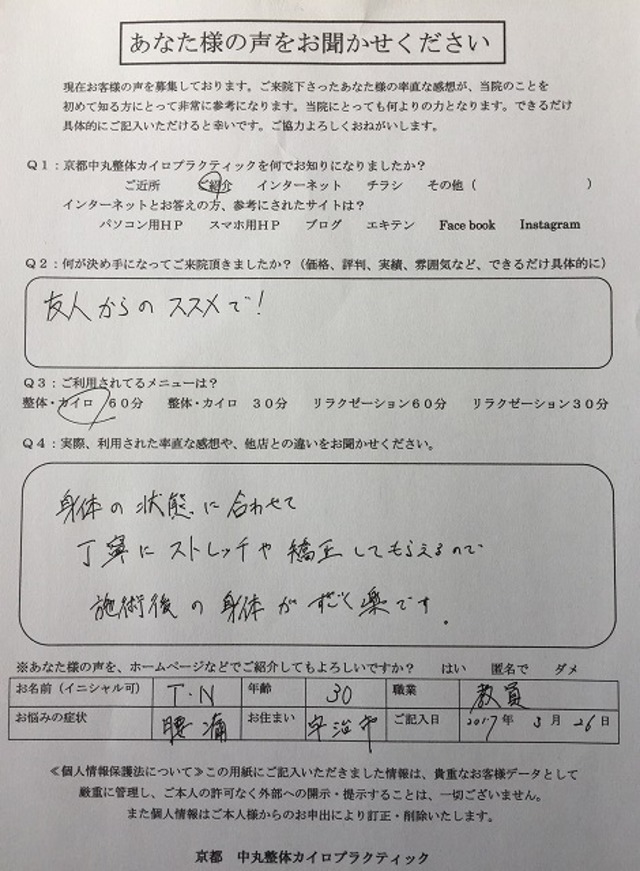 あなた様の声をお聞かせください
現在お客様の声を募集しております。ご来院下さったあなた様の率直な感想が、当院のことを
初めて知る方にとって非常に参考になります。当院にとっても何よりの力となります。できるだけ
具体的にご記入いただけると幸いです。ご協力よろしくおねがいします。
Q1：京都中丸整体カイロプラクティックを何でお知りになりましたか？
ご近所　ご紹介　インターネット　チラシ　その他（　　　　　　　）
インターネットとお答えの方、参考にされたサイトは？
パソコン用HP　スマホ用HP　ブログ　エキテン　Face book　Instagram
Q2：何が決め手になってご来院頂きましたか？（価格、評判、実績、雰囲気など、できるだけ具体的に）
友人からの ススメで！
Q3：ご利用されてるメニューは？
整体・カイロ 60分　整体・カイロ 30分　リラクゼーション60分　リラクゼーション30分
Q4：実際、利用された率直な感想や、他店との違いをお聞かせください。
身体の状態に合わせて
丁寧にストレッチや矯正してもらえるので
施術後の身体がすごく楽です.
※あなた様の声を、ホームページなどでご紹介してもよろしいですか？　はい　匿名で　ダメ
お名前（イニシャル可）　T・N　年齢　30　職業　教員
お悩みの症状　腰痛　お住まい　宇治市　ご記入日　2017年 3月 26日
≪個人情報保護法について≫この用紙にご記入いただきました情報は、貴重なお客様データとして
厳重に管理し、ご本人の許可なく外部への開示・提示することは、一切ございません。
また個人情報はご本人様からのお申出により訂正・削除いたします。
京都　中丸整体カイロプラクティック